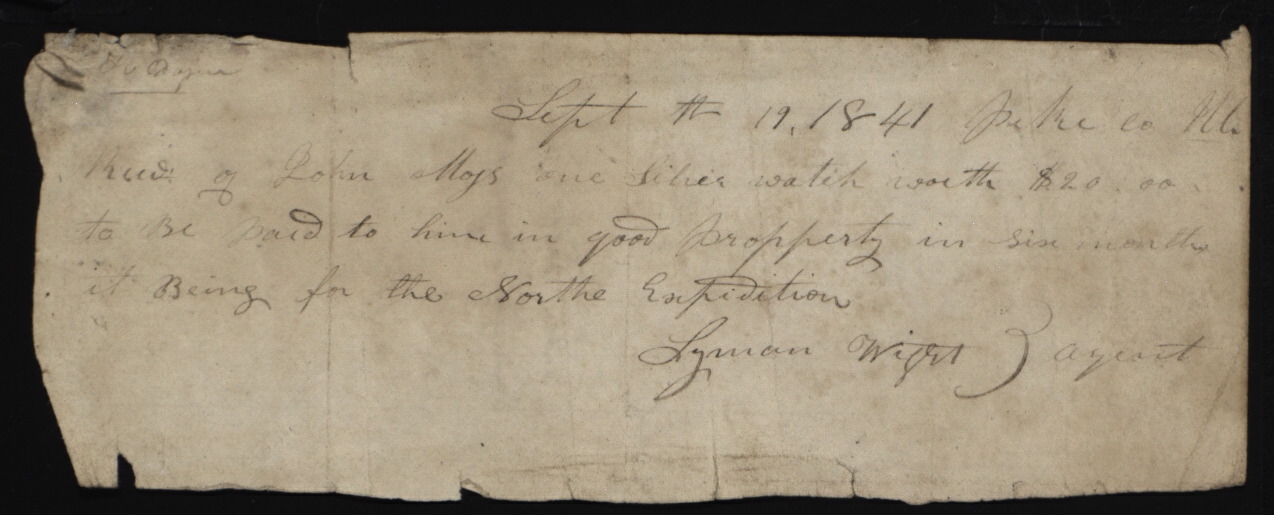 Sept th 19, 1841 Pike co Ill.
Recd of John Moss one Silver watch worth $20.00
to Be paid to him in good propperty in six months
it Being for the Northe Expidition
Lyman Wight } agent